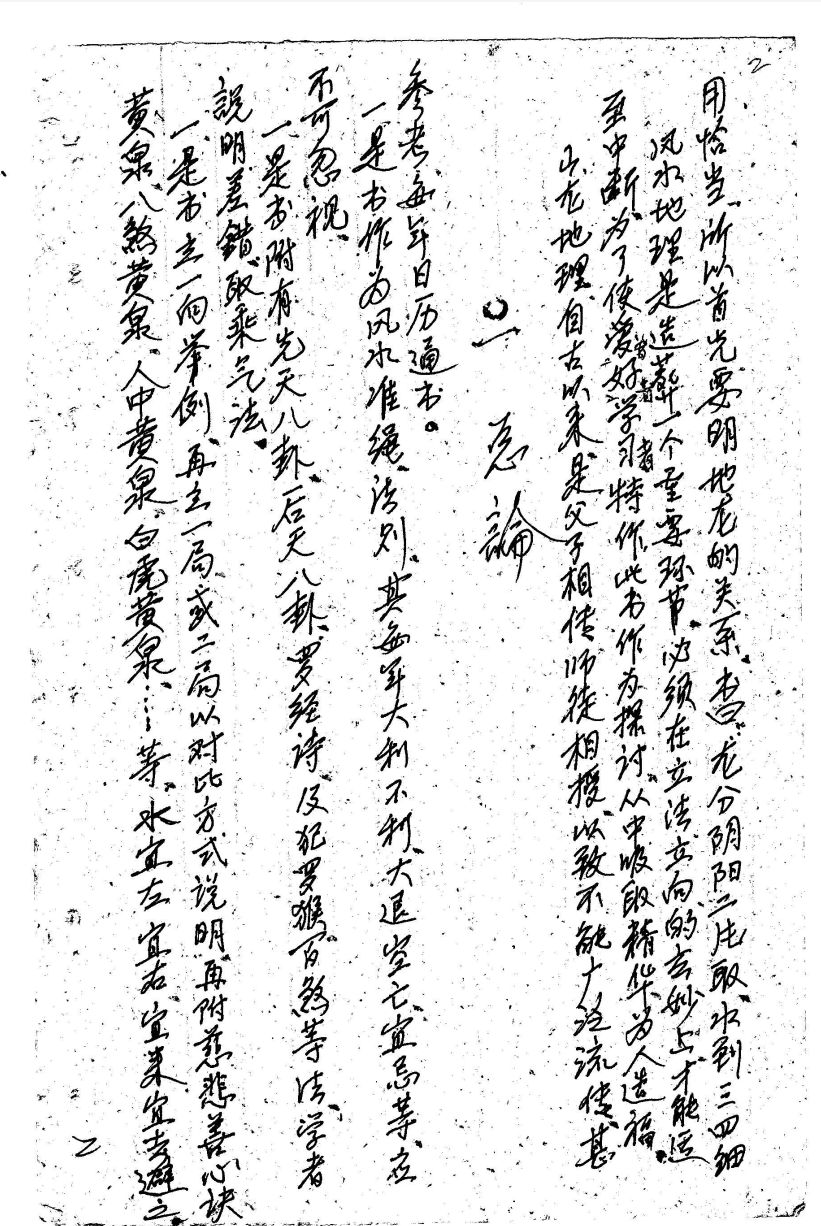 黄泉、八煞黄泉、人中黄泉、白虎黄泉……等、水宜左宜右、宜来宜去避之、
一、是书立一向举例、再立一局或二局以对比方式说明、再附慈悲善心诀
説明差錯、取乘气法、
一、是书附有先天八卦、后天八卦、罗经诗、及犯罗猴百煞等法、学者
不可忽视、
一、是书作为风水准绳、法则、其每年大利不利、大退空亡、宜忌等、应
参考每年日历通书。
一 总論
山龙地理、自古以来是父子相传、师徒相授、以致不能广泛流传、甚
至中断、为了使爱好学习者特作此书作为探讨、从中吸取精华为人造福、
风水地理是造葬一个至要环节、必须在立法立向的玄妙上、才能运
用恰当、所以首先要明地龙的关系、书曰：龙分阴阳二片取、水到三四细
2
2